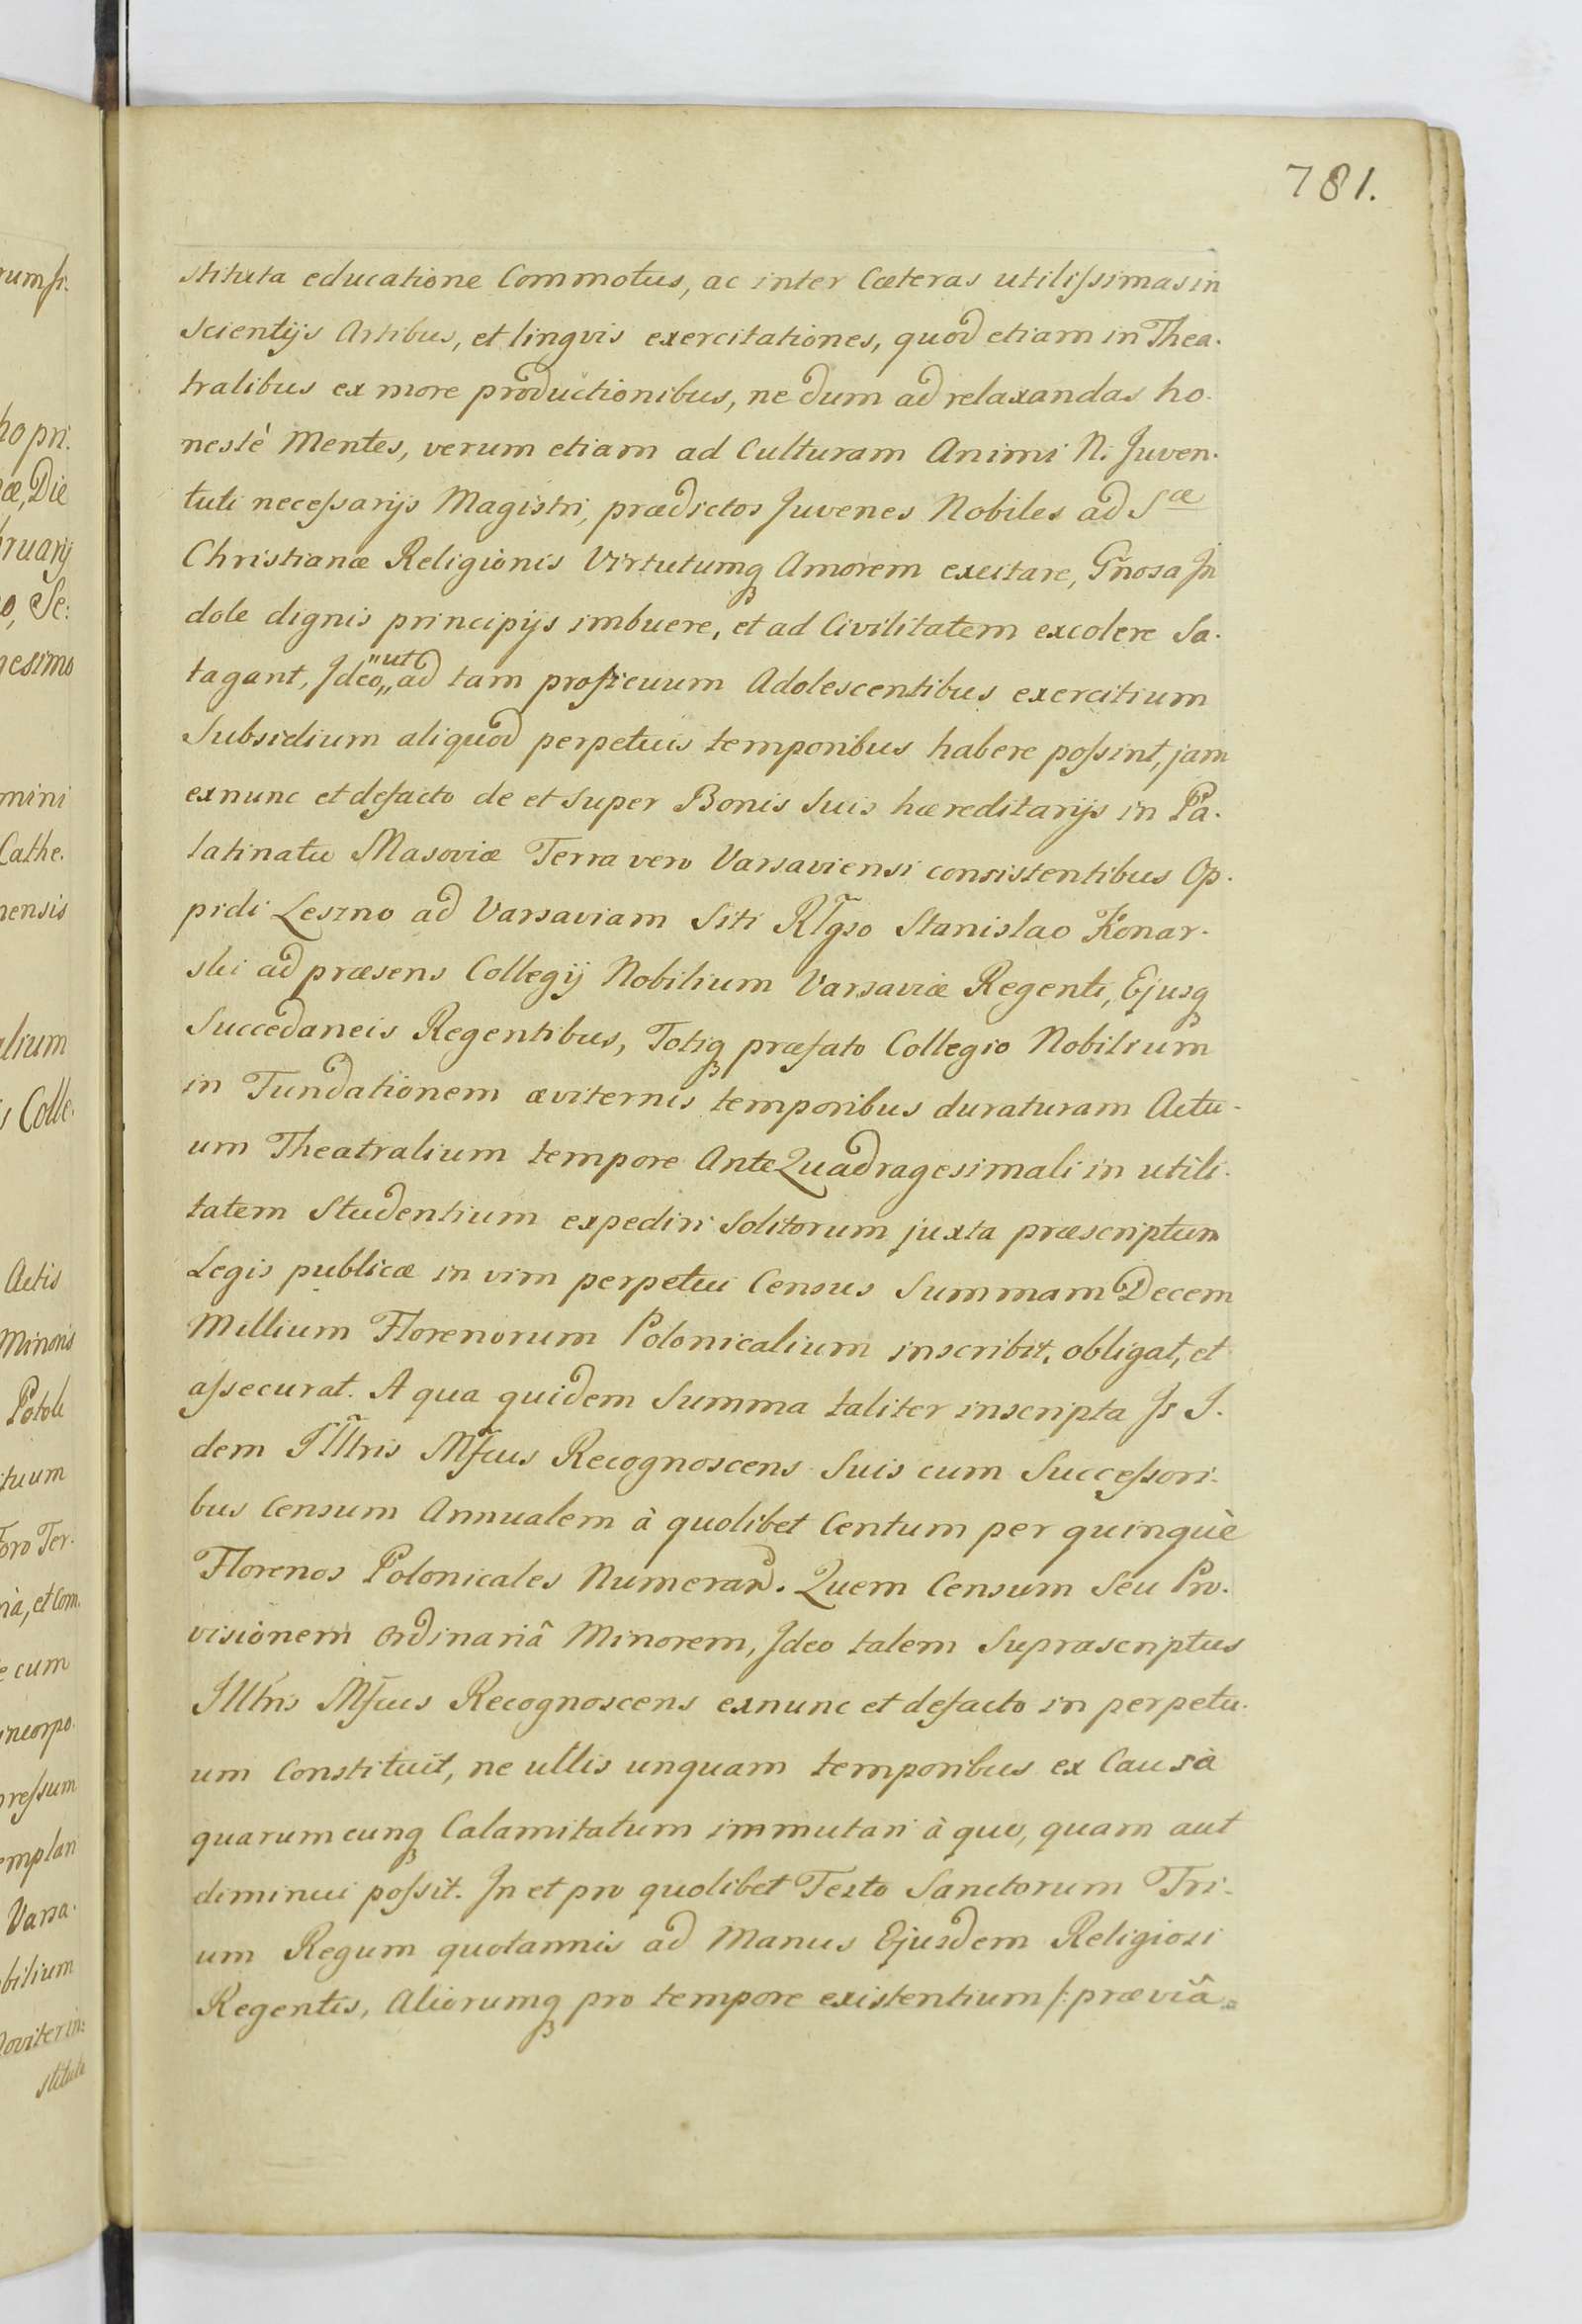 781.
stituta educatione Commotus, ac inter Cæteras utilissimas in
Scientijs Artibus, et lingvis exercitationes, quod etiam in Thea-
tralibus ex more productionibus, ne dum ad relaxandas ho-
nestè Mentes, verum etiam ad Culturam Animi N: Juven-
tuti necessarijs Magistri, prædictos Juvenes Nobiles ad Sæ
Christianæ Religionis Virtutumq Amorem excitare, Gñosa In
dole dignis principijs imbuere, et ad Civilitatem excolere Sa-
tagant, Ideo "ut" ad tam proficuum Adolescentibus exercitium
Subsidium aliquod perpetuis temporibus habere possint, jam
exnunc et defacto de et super Bonis Suis hæreditarijs in Pa-
latinatu Masoviæ Terra vero Varsaviensi consistentibus Op-
pidi Leszno ad Varsaviam Siti Rlgso Stanislao Konar-
ski ad præsens Collegij Nobilium Varsaviæ Regenti, Ejusq
Succedaneis Regentibus, Totiq præfato Collegio Nobilium
in Fundationem æviternis temporibus duraturam Actu-
um Theatralium tempore AnteQuadragesimali in utili-
tatem Studentium expediri Solitorum juxta præscriptum
Legis publicæ in vim perpetui Census Summam Decem
Millium Florenorum Polonicalium inscribit, obligat, et
assecurat. A qua quidem Summa taliter inscripta Is I-
dem Illtris Mfcus Recognoscens Suis cum Successori-
bus Censum Annualem à quolibet Centum per quinquè
Florenos Polonicales Numerand. Quem Censum Seu Pro-
visionem ordinariâ Minorem, Ideo talem Suprascriptus
Illtris Mfcus Recognoscens exnunc et defacto in perpetu-
um Constituit, ne ullis unquam temporibus ex Causa
quarumcunq Calamitatum immutari à quo, quam aut
diminui possit. In et pro quolibet Festo Sanctorum Tri-
um Regum quotannis ad Manus Ejusdem Religiosi
Regentis, Aliorumq pro tempore existentium /: præviâ